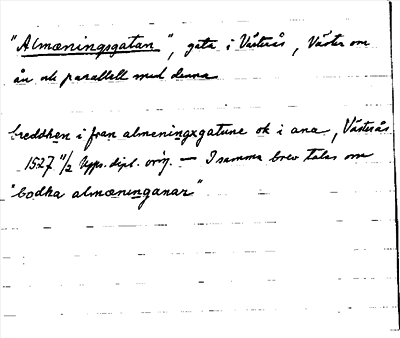 "Almæningsgatan", gata i Västerås, Väster om
ån och parallell med denna
bredhen i fran almeningxgatune ok i ana, Västerås
1527 11/2 Upps. dipl. orig. — I samma brev talas om
"bodha almæninganar"